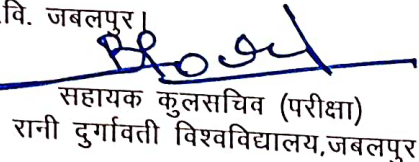 वि. जबलपुर।
सहायक कुलसचिव (परीक्षा)
रानी दुर्गावती विश्वविद्यालय,जबलपुर